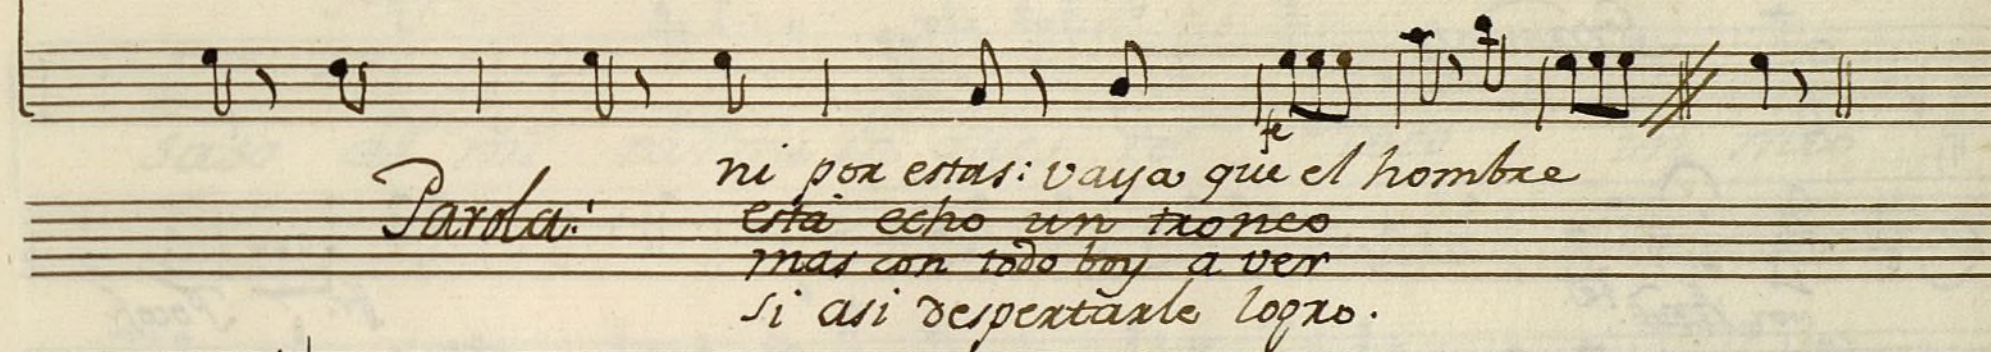 fe
ni por estas: vaya que el hombre
Parola: está echo un tronco
mas con todo boy a ver
si asi despertarle logro.